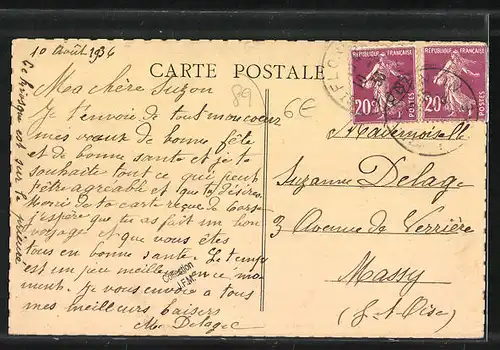 10 Août 1936
CARTE POSTALE
Ma chère Suzon
Je t'envoie de tout mon coeur
mes vœux de bonne fête
et de bonne santé et je te
souhaite tout ce qui peut
t'être agréable et que tu désires.
Merci de ta carte reçue de
j'espère que tu as fait un bon
voyage et que vous êtes
tous en bonne santé. Le temps
est un peu meilleur en ce mo-
ment. Je vous envoie à tous
mes meilleurs baisers
M. Delage
Le kiosque est sur le
89
6€
Collection
J.F.M.
REPUBLIQUE FRANÇAISE
20c
POSTES
REPUBLIQUE FRANÇAISE
20c
POSTES
Mademoiselle
Suzanne Delage
3 Avenue de Verrière
Massy
(S-et-Oise)